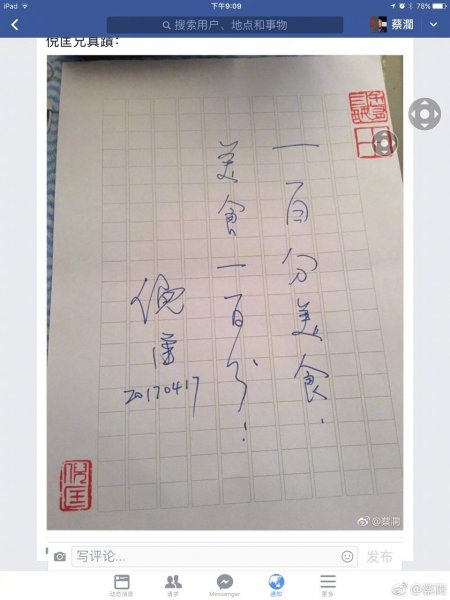 iPad 下午9:09 78%
搜索用户、地点和事物 蔡瀾
倪匡兄真蹟：
一百分美食.
美食一百分！
倪匡
20170417
倪匡
@蔡瀾
写评论... 发布
动态消息 请求 Messenger 通知 更多
@蔡瀾